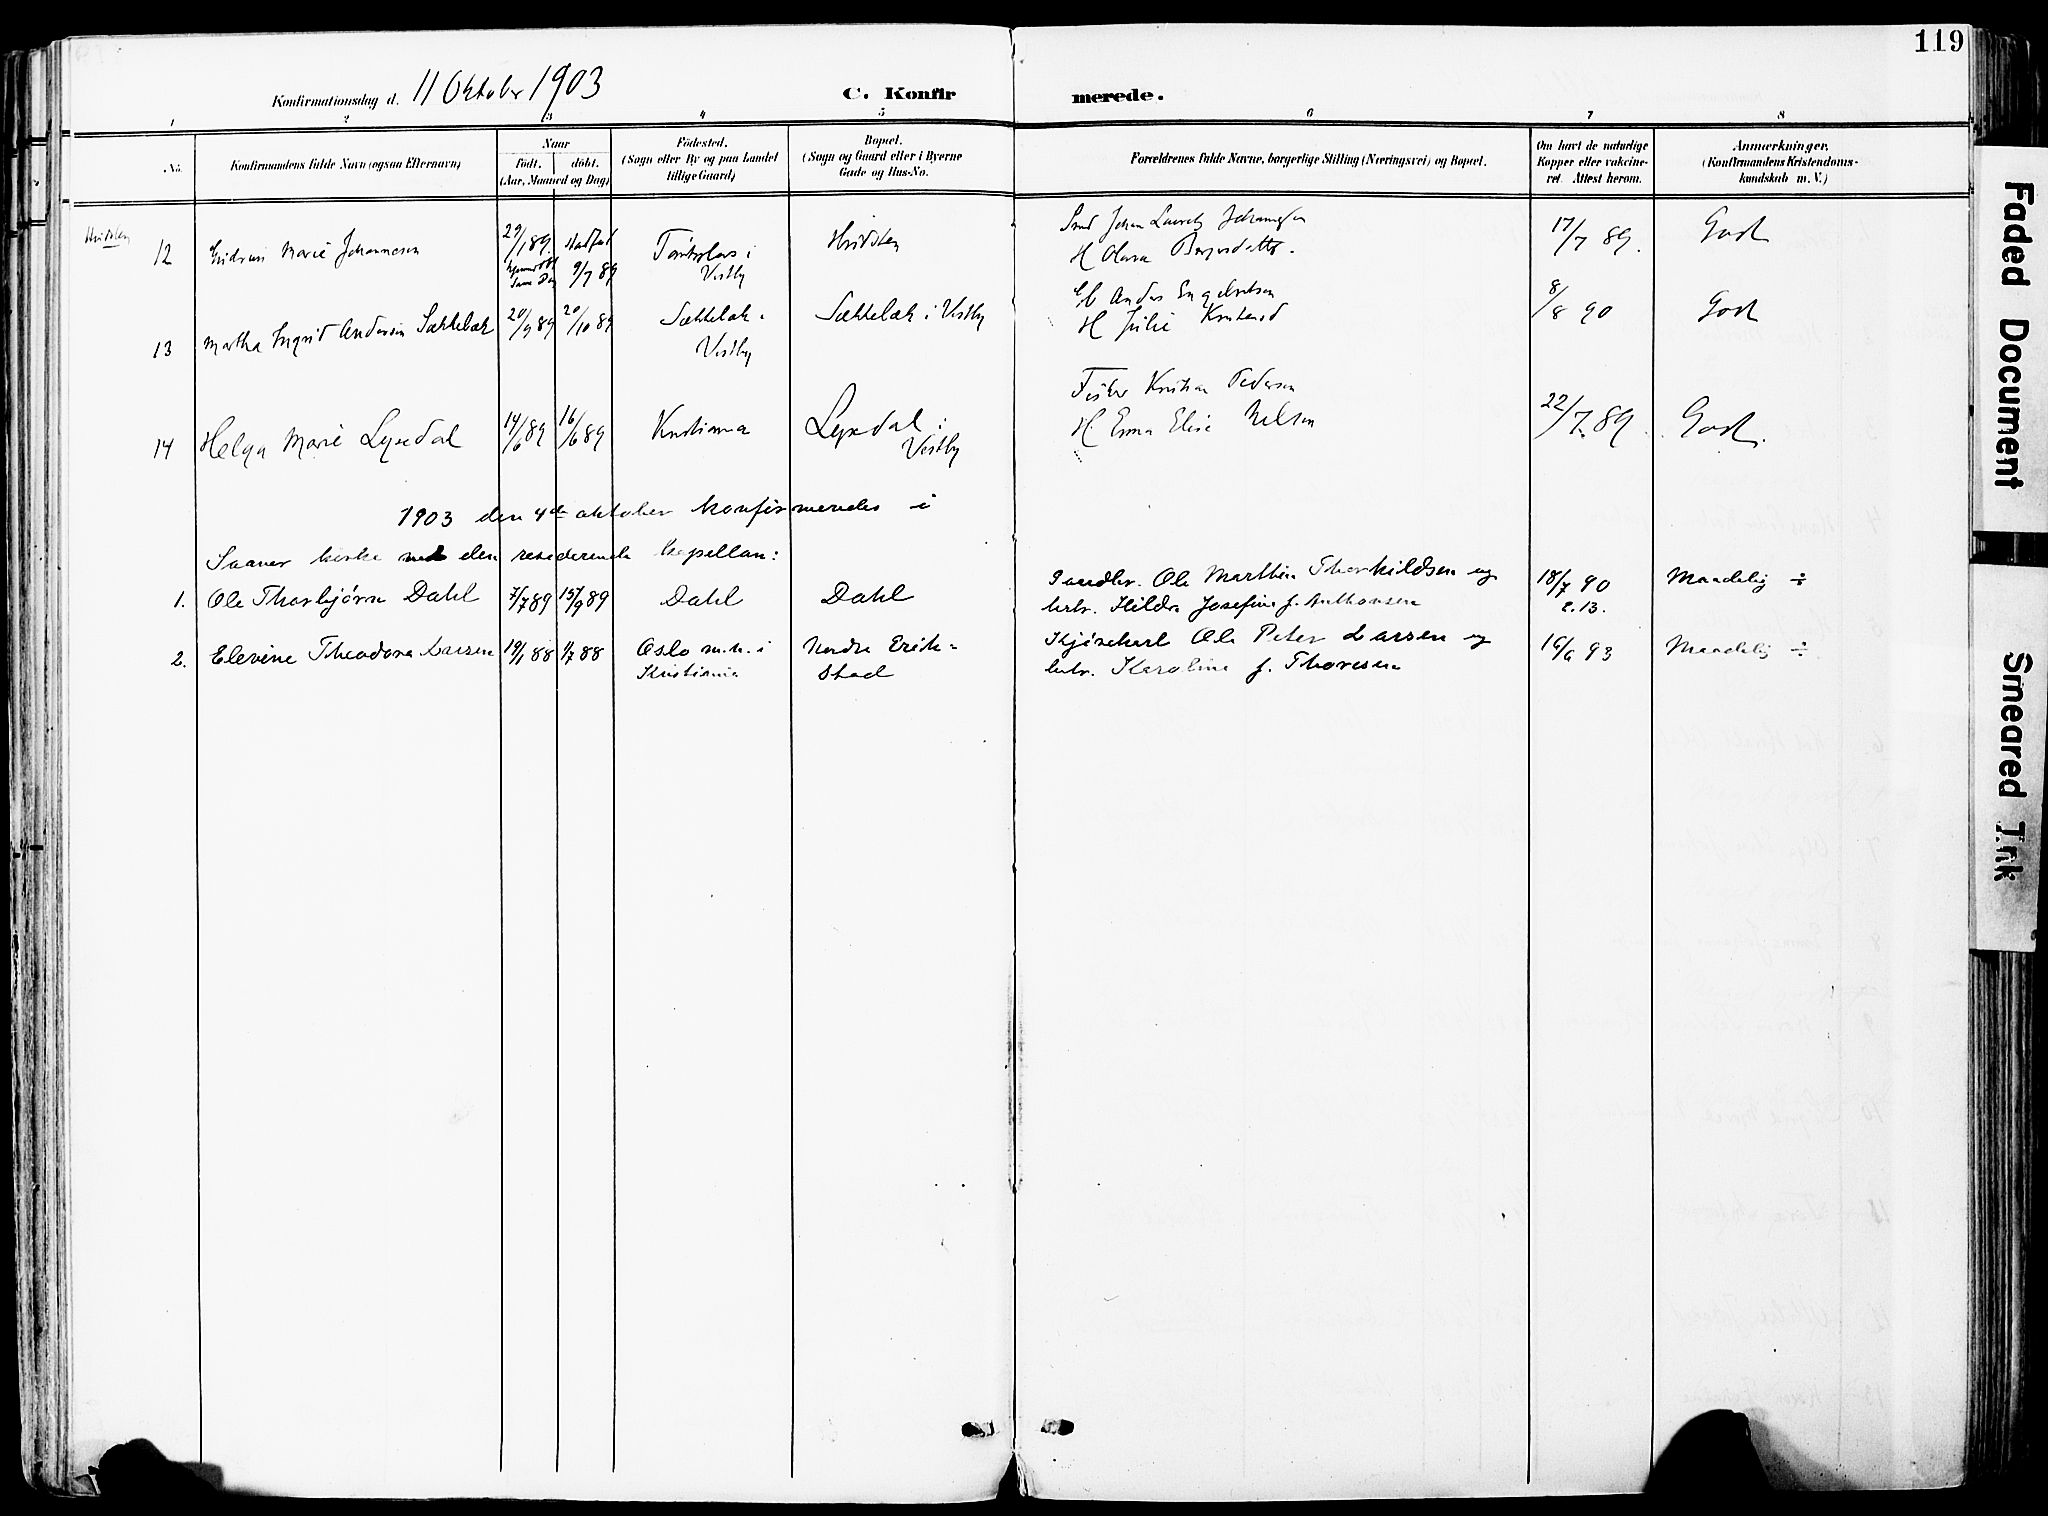 119
Konfirmationsdag d. 11 Oktober 1903
C. Konfirmerede.
1 2 3 4 5 6 7 8
No.
Konfirmandens fulde Navn (ogsaa Efternavn)
Naar
födt. döbt.
(Aar, Maaned og Dag)
Födested.
(Sogn eller By og paa Landet
tillige Gaard)
Bopæl.
(Sogn og Gaard eller i Byerne
Gade og Hus-No.
Forældrenes fulde Navne, borgerlige Stilling (Næringsvei) og Bopæl.
Om havt de naturlige
Kopper eller vakcine-
ret. Attest herom.
Anmerkninger.
(Konfirmandens Kristendoms-
kundskab m. V.)
Hvidsten
12 Gudrun Marie Johannesen 29/1 89 9/7 89 i Vestby Hvidsten
Smed Johan Lauritz Johannesen
H. Olava 17/7 89. Godt
13 Martha Ingrid Andersen Sækkelæk 20/9 89 20/10 89 Sækkelæk i Vestby Sækkelæk i Vestby
Anders Engebretsen
H Julie 8/8 90 Godt
14 Helga Marie Lysedal 14/6 89 16/6 89 Kristiania Lysedal i Vestby
Fisker Kristian Pedersen
H Emma Elise Nilsen 22/7 89. Godt.
1903 den 4de oktober konfirmeredes i
Saaner kirke ved den residerende kapellan:
1. Ole Thorbjørn Dahl 7/7 89 15/9 89 Dahl Dahl
Gaardbr. Ole Marthin Thorkildsen og
hstr. Hilda Josefine f. Anthonsen 18/7 90 Maadelig ÷
2. Elevine Theodora Larsen 19/1 88 1/7 88 Oslo m.h. i Kristiania Nordre Erik-
stad
Kjørekarl Ole Peter Larsen og
hstr. Karoline f. Thoresen 16/6 93 Maadelig ÷
Faded Document
Smeared Ink